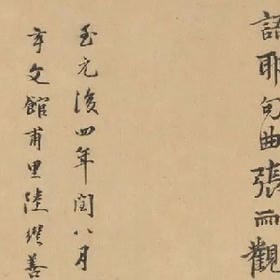 語耶句曲張雨觀
至元後四年閏八月
文館甫里陸繼善